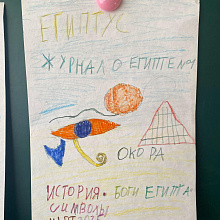 ЕГИПТУС
ЖУРНАЛ О ЕГИПТЕ №1
ОКО РА
ИСТОРИЯ• БОГИ ЕГИПТА•
СИМВОЛЫ